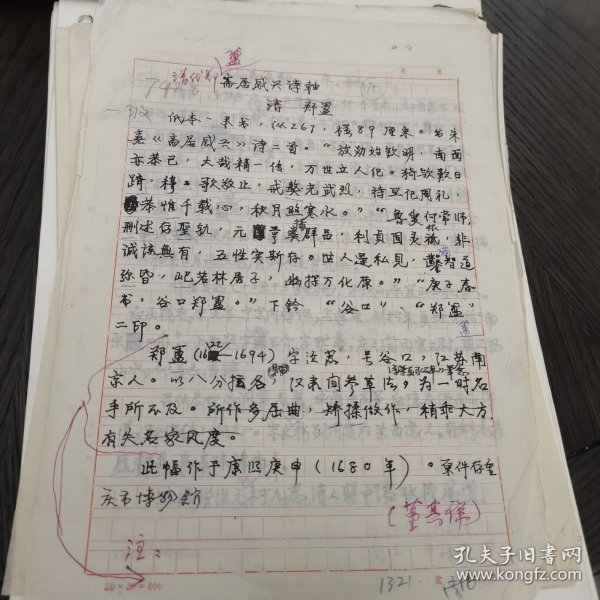 清代郑簠
斋居感兴诗轴
清 郑簠
纸本一束书,纵267,横89厘米。书朱
熹《斋居感兴》诗二首。“放勋始钦明,南面
亦恭己,大哉精一传,万世立人纪。猗欤叹日
跻,穆歌敬止,戒獒光武烈,待旦起周礼,
恭惟千载心,秋月照寒水。”“鲁叟何常师,
删述存圣轨,元亨播群品,利贞固灵根,非
诚谅无有,五性实斯存。世人逞私见,凿智道
弥昏,岂若林居子,幽探万化原。”“庚子春
书,谷口郑簠。”下钤“谷口”、“郑簠”
二印。
郑簠(1622—1694)字汝器,号谷口,江苏南
京人。以八分擅名,汉隶间参草法,为一时名
手所不及。所作多屈曲,矫揉做作,稍乖大方
有失名家风度。
此幅作于康熙庚申(1680年)。原件存重
庆市博物馆
注:
20×20=400
1321
孔夫子旧书网
www.kongfz.com